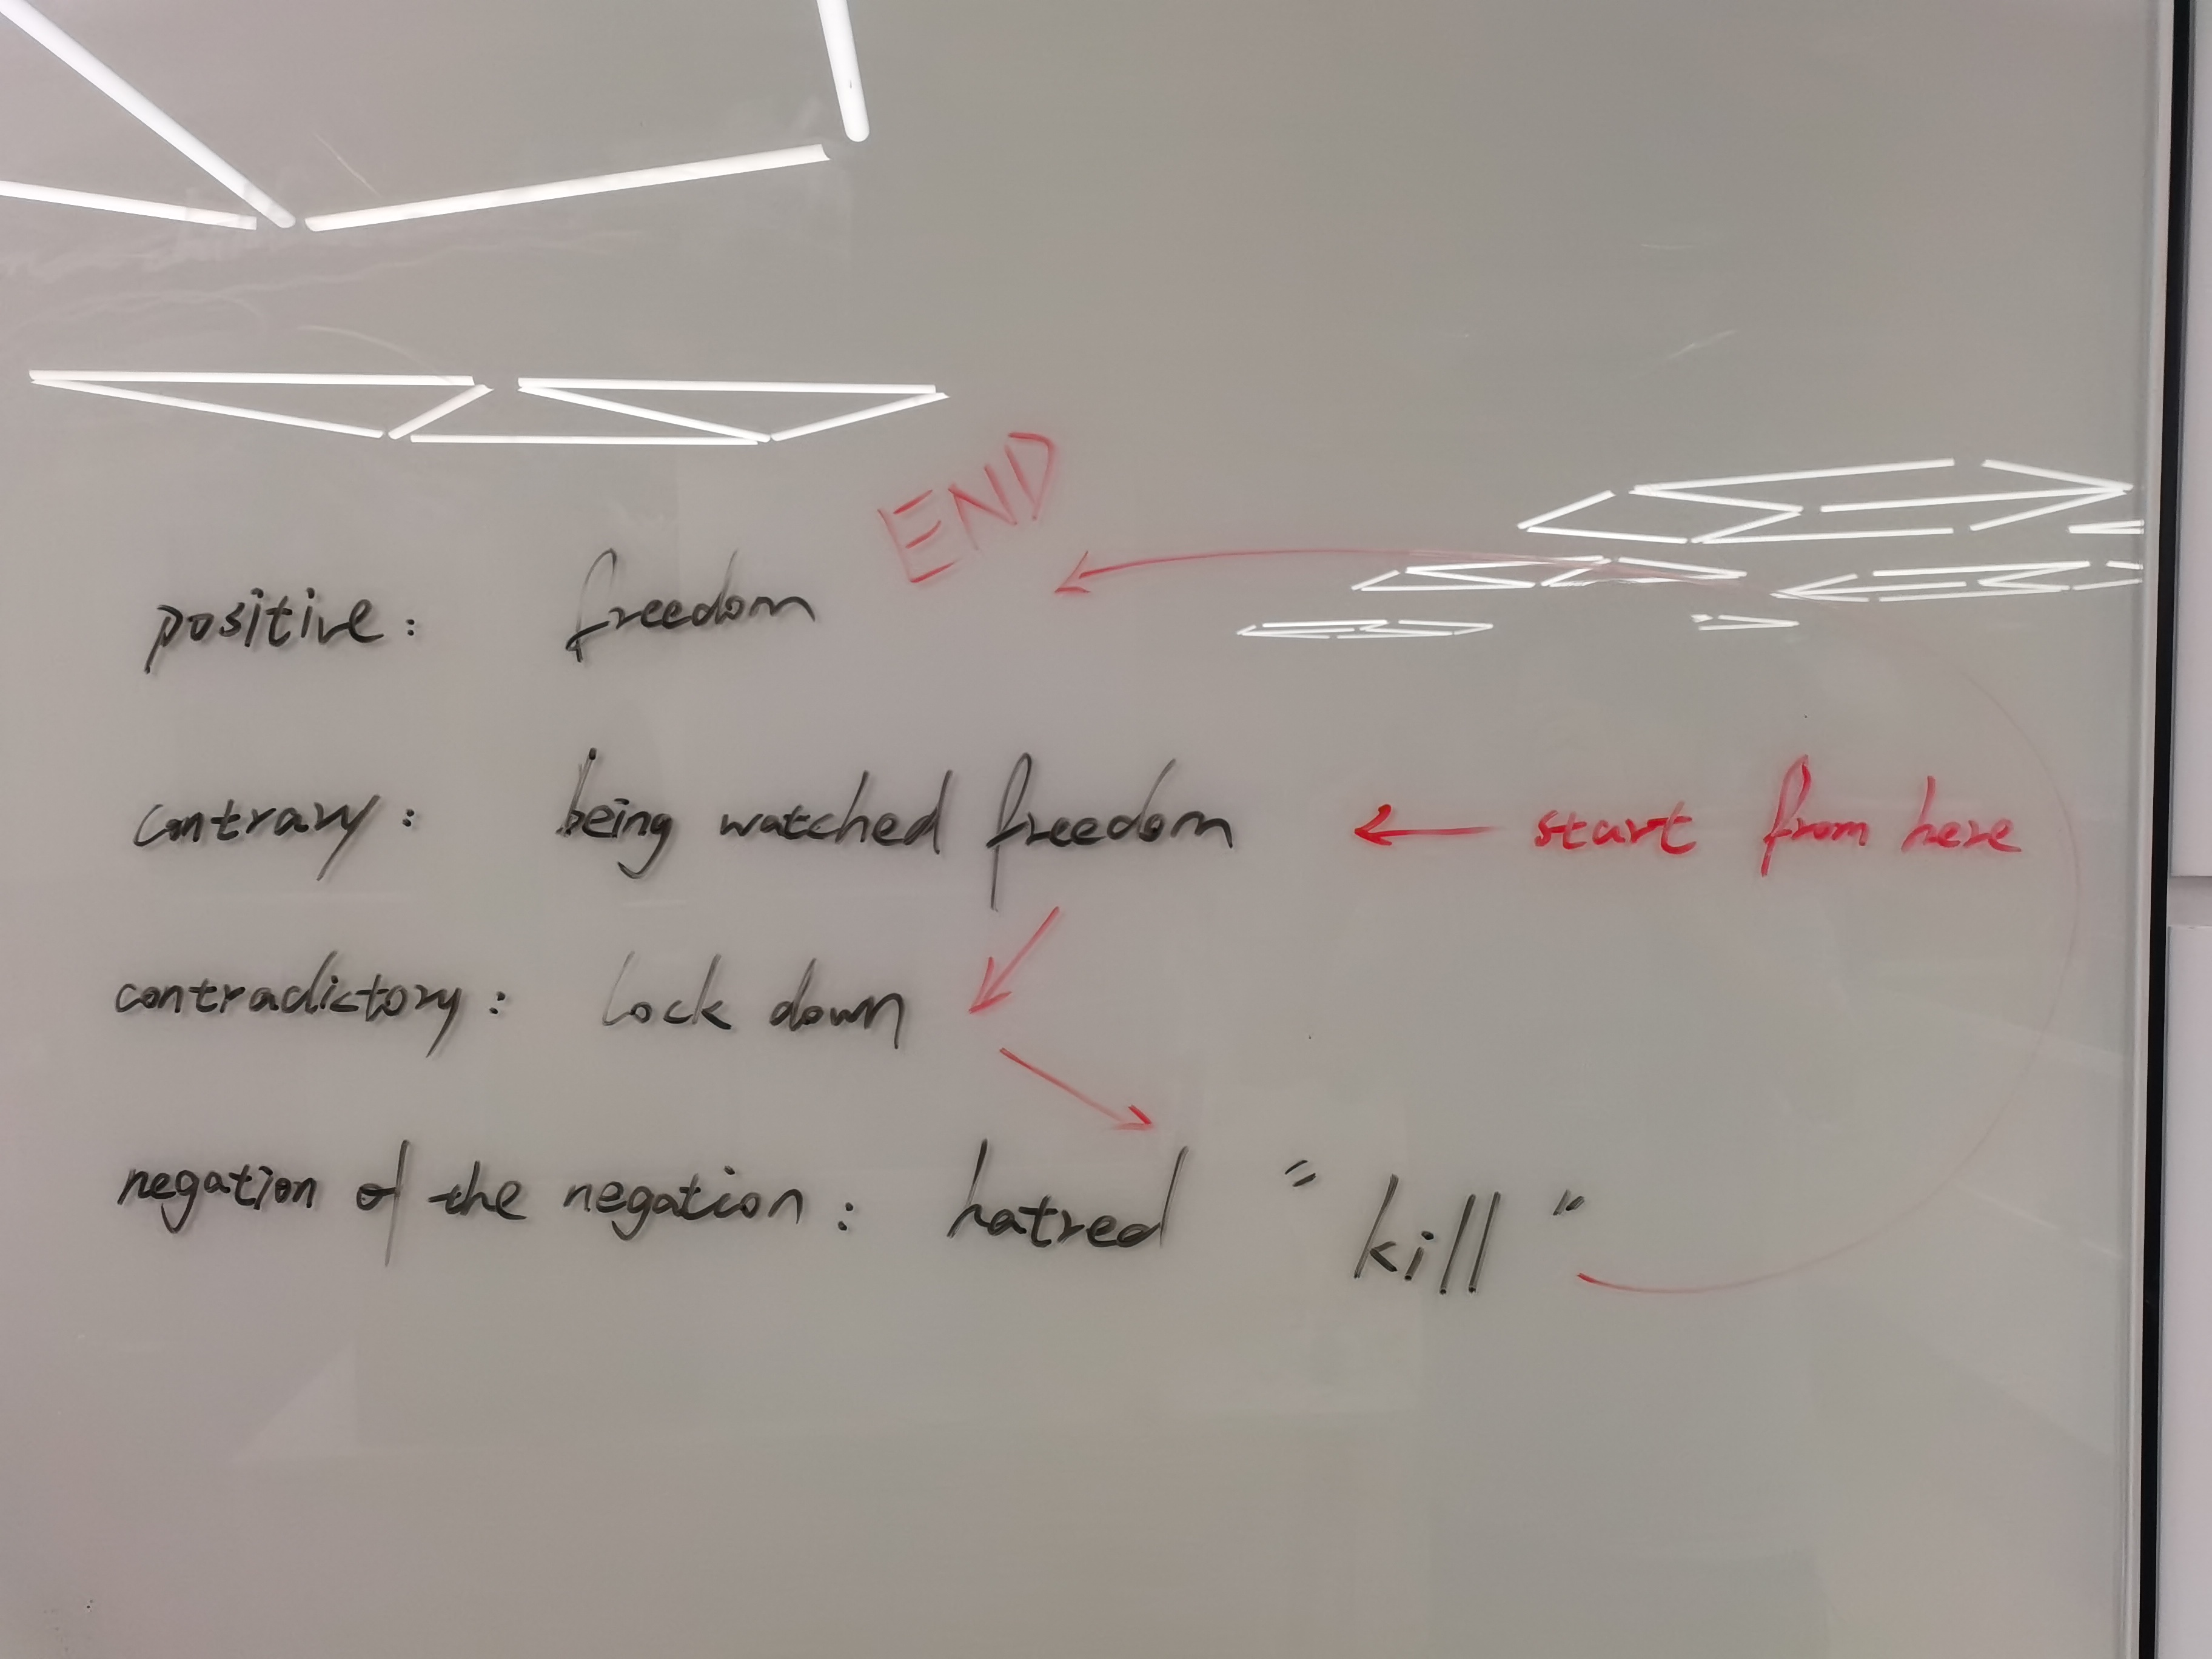 END
positive: freedom
contrary: being watched freedom ← start from here
contradictory: lock down
negation of the negation: hatred "kill"